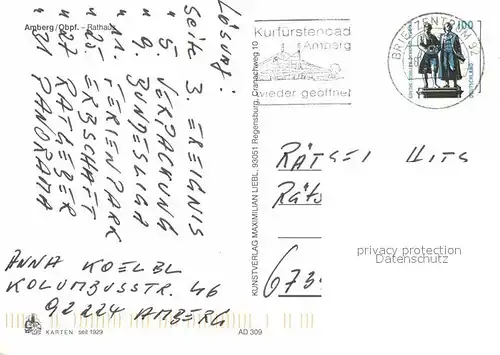 Amberg/Obpf. – Rathaus
Lösung:
Seite 3. EREIGNIS
" 5. VERPACKUNG
" 9. BUNDESLIGA
" 11. FERIENPARK
" 25 ERBSCHAFT
" 27 RATGEBER
" 21 PANORAMA
ANNA KOELBL
KOLUMBUSSTR. 46
92224 AMBERG
KARTEN seit 1929
AD 309
KUNSTVERLAG MAXIMILIAN LIEBL, 93051 Regensburg, Cranachweg 10
Kurfürstenbad
Amberg
wieder geöffnet
BRIEFZENTRUM 92
100
DEUTSCHLAND
RÄTSEL HITS
Räts
6734
privacy protection
Datenschutz